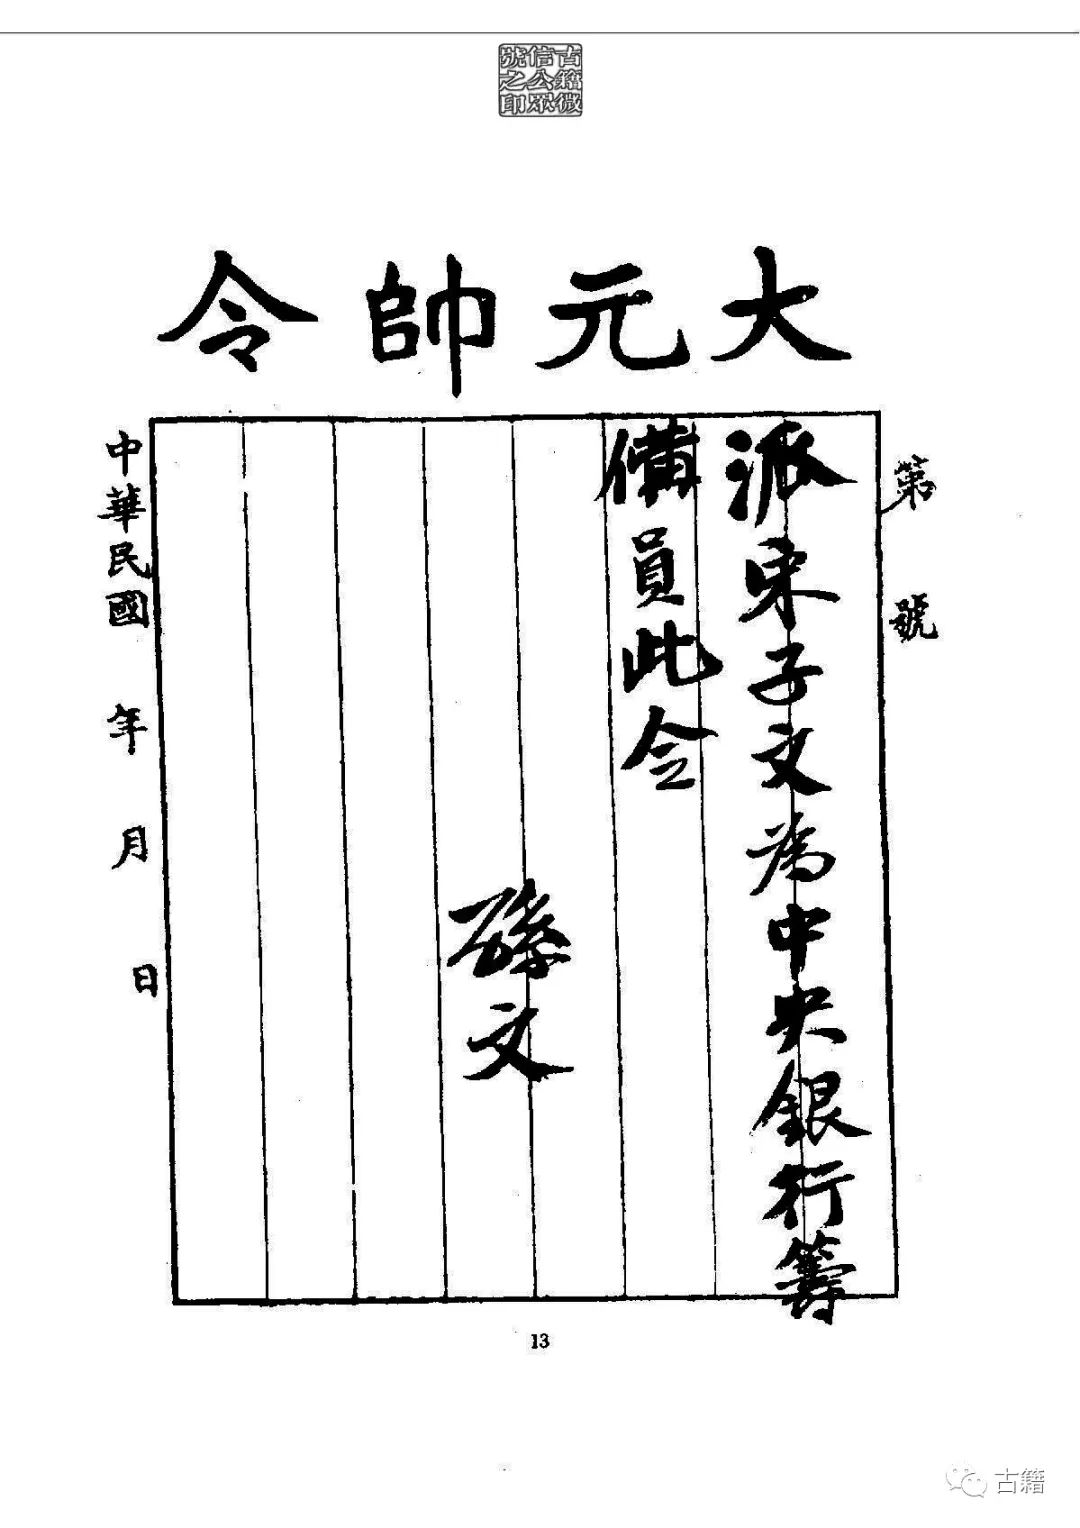 古籍微
信公眾
號之印
大元帥令
第 號
派宋子文為中央銀行籌
備員此令
孫文
中華民國 年 月 日
13
古籍